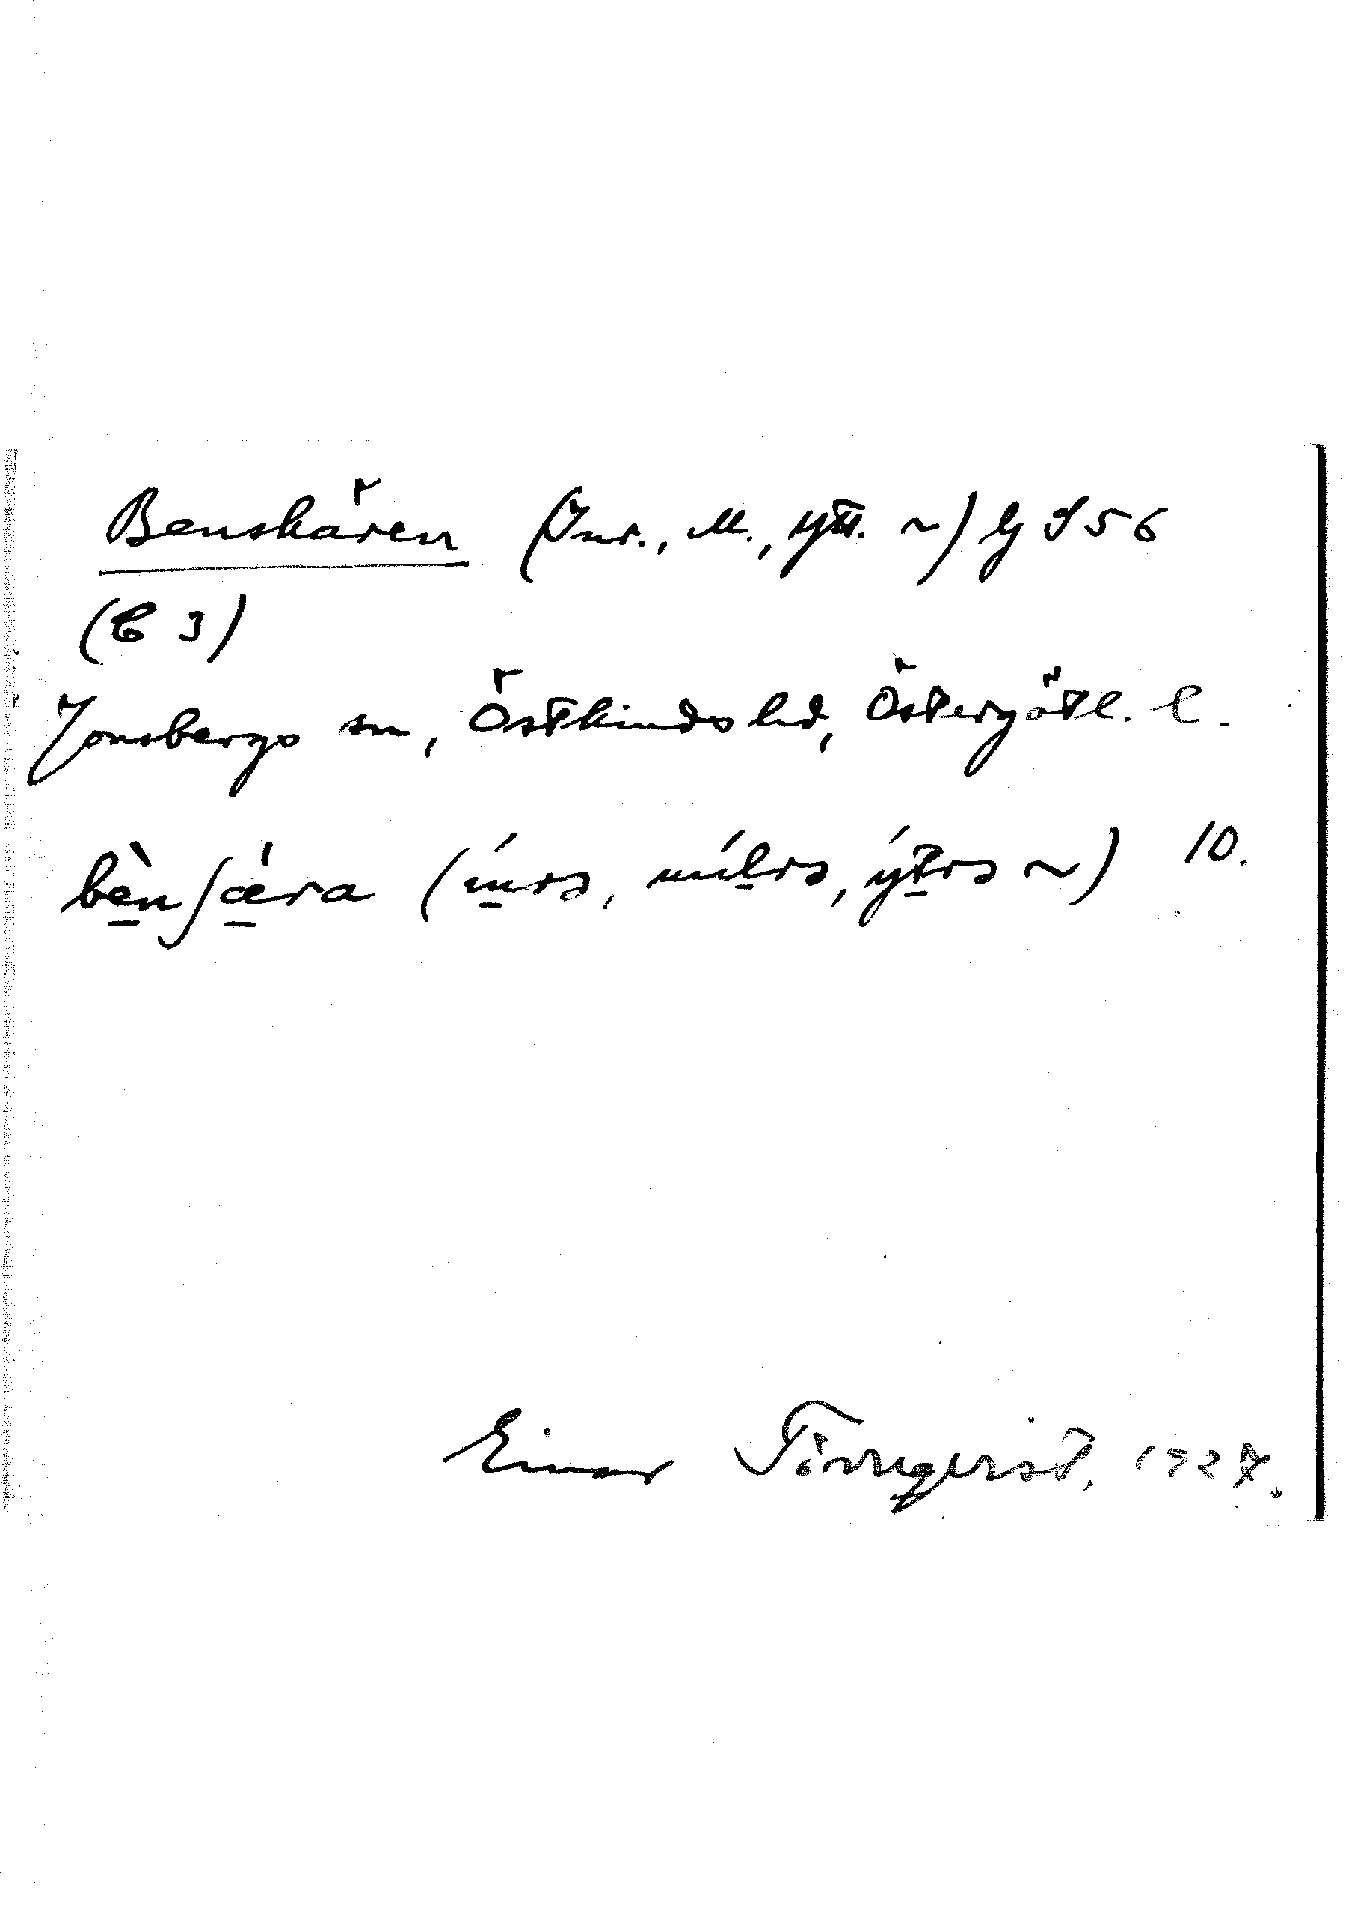 Benskären (Inr., M., ytt. ~) G 956
(C 3)
Jonsbergs sn, Östkinds hd, Östergötl. l.
bènʃǽra (ínrə, mílrə, ýtrə ~) 10.
Einar Törnqvist. 1927.